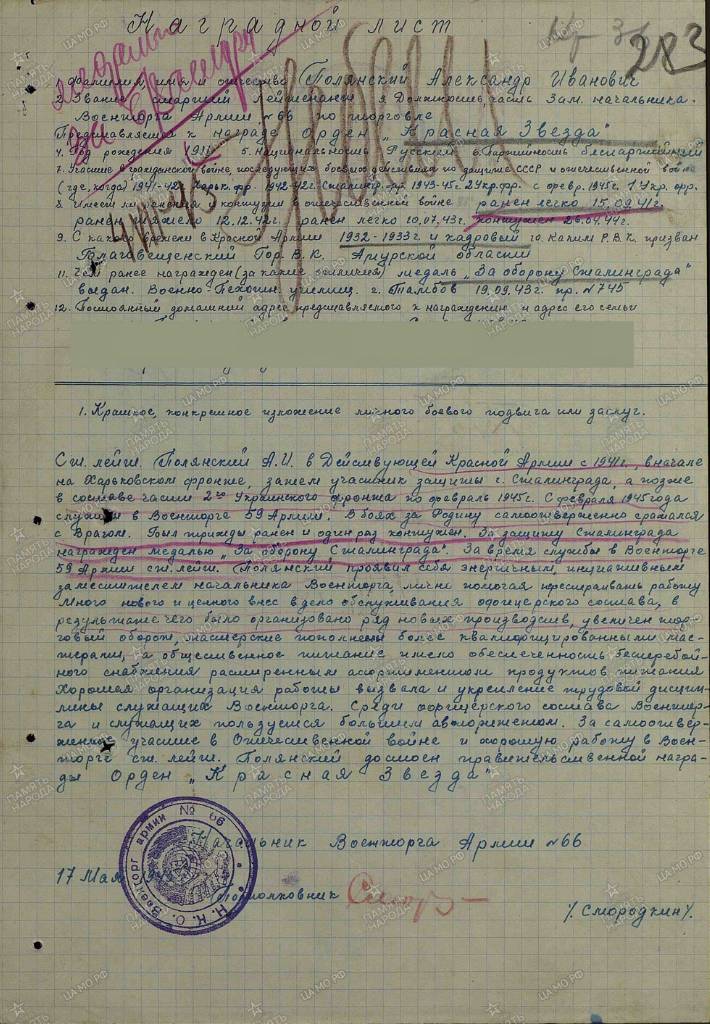 Наградной лист
283
1. Фамилия, имя и отчество Полянский Александр Иванович
2. Звание старший лейтенант 3. Должность, часть Зам. начальника
Военторга Армии №66 по торговле
Представляется к награде Орден „Красная Звезда"
4. Год рождения 1911 5. Национальность Русский 6. Партийность беспартийный
7. Участие гражданской войне, последующих боевых действиях по защите СССР и отечественной войне
(где, когда) 1941-42г. Харьк. фр. 1942-42г. Сталингр. фр. 1943-45г. 2 Укр. фр. с февр. 1945г. 1 Укр. фр.
8. Имеет ли ранения и контузии в отечественной войне ранен легко 15.09.41г.
ранен тяжело 12.12.42г. ранен легко 10.07.43г. контужен 26.04.44г.
9. С какого времени в Красной Армии 1932-1933г. и кадровый 10. Каким Р.В.К. призван
Благовещенский Гор. В.К. Амурской области
11. Чем ранее награжден (за какие отличия) медаль „За оборону Сталинграда"
выдан. Военно-Пехотн. училищ. г. Тамбов 19.09.43г. пр. №745
12. Постоянный домашний адрес представляемого к награждению и адрес его семьи
1. Краткое, конкретное изложение личного боевого подвига или заслуг.
Ст. лейт. Полянский А.И. в Действующей Красной Армии с 1941г., вначале
на Харьковском фронте, затем участник защиты г. Сталинграда, а позже
в составе части 2го Украинского фронта по февраль 1945г. С февраля 1945 года
служит в Военторге 59 Армии. В боях за Родину самоотверженно сражался
с Врагом. Был трижды ранен и один раз контужен. За защиту Сталинграда
награжден медалью „За оборону Сталинграда". За время службы в Военторге
59 Армии ст. лейт. Полянский проявил себя энергичным, инициативным
заместителем начальника Военторга, лично помогая перестраивать работу
Много нового и ценного внес в дело обслуживания офицерского состава, в
результате чего было организовано ряд новых производств, увеличен тор-
говый оборот, мастерские пополнены более квалифицированными мас-
терами, а общественное питание имело обеспеченность бесперебой-
ного снабжения расширенным ассортиментом продуктов питания
Хорошая организация работы вызвала и укрепление трудовой дисцип-
лины служащих Военторга. Среди офицерского состава Военторг-
га и служащих пользуется большим авторитетом. За самоотвер-
женное участие в Отечественной войне и хорошую работу в Воен-
торге ст. лейт. Полянский достоин правительственной награ-
ды Орден „Красная Звезда"
Начальник Военторга Армии №66
17 Мая
Подполковник
/Смородкин/.
Н.К.О. Военторг армии № 66